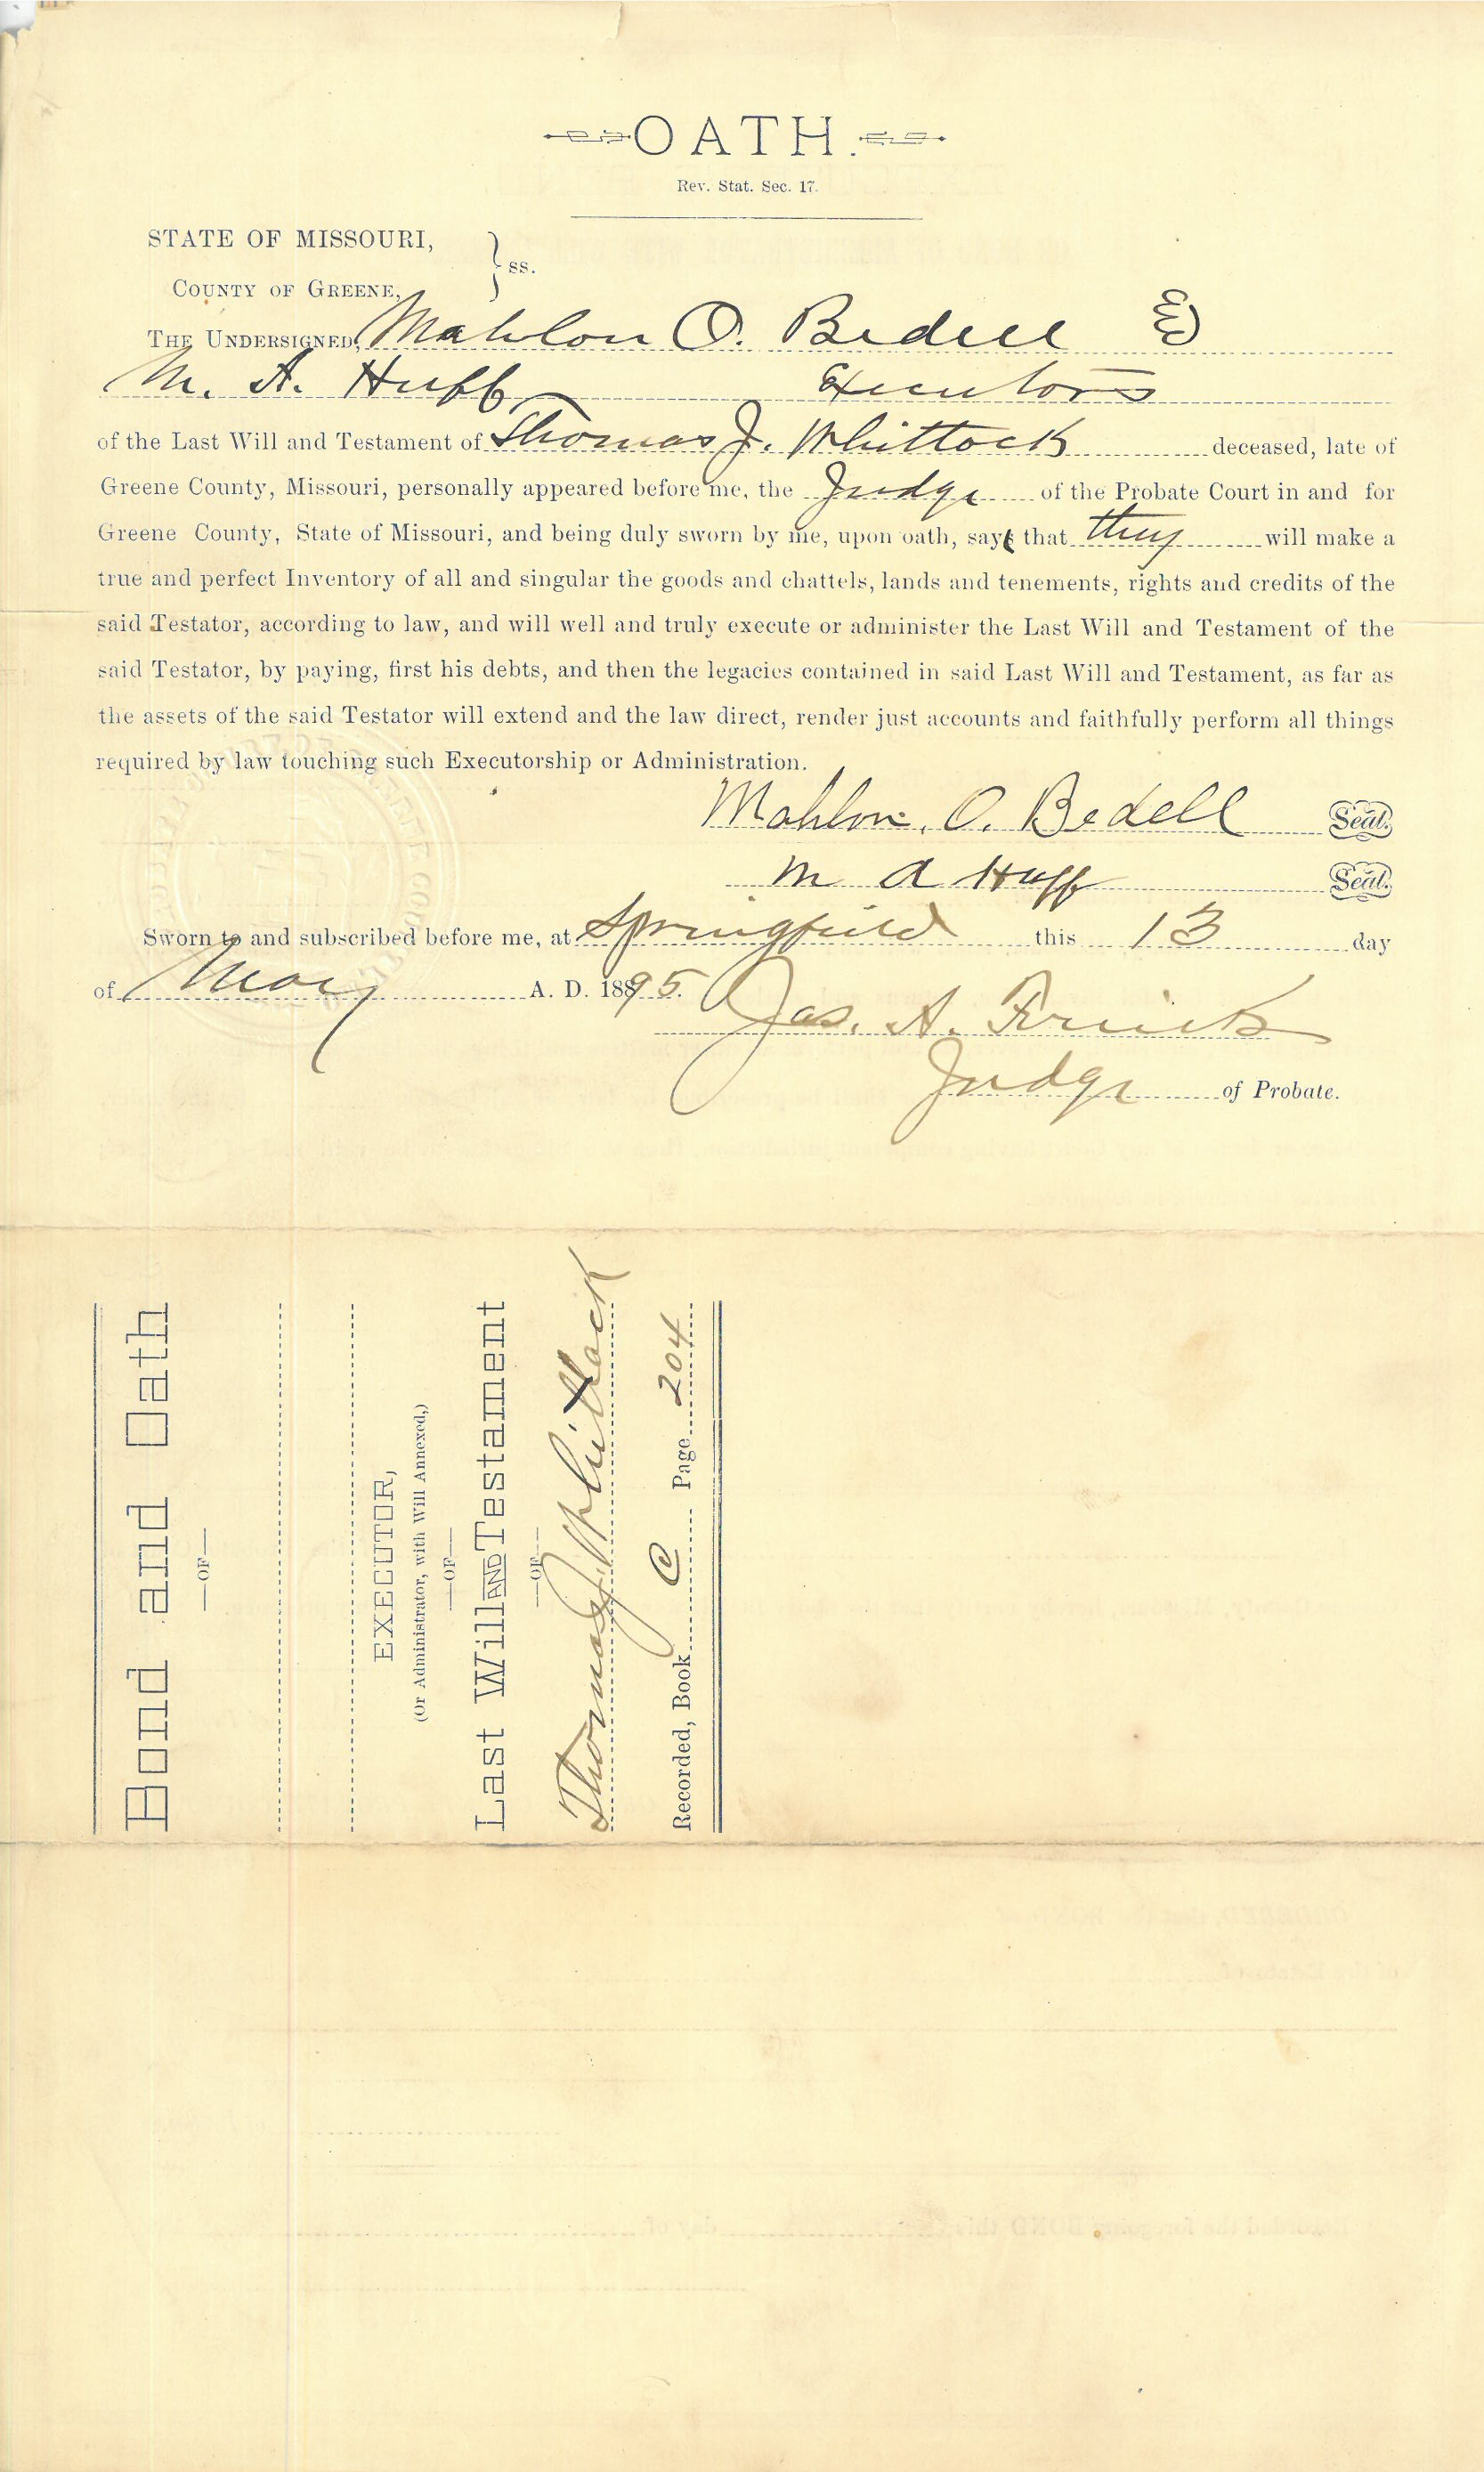 OATH.
Rev. Stat. Sec. 17.
STATE OF MISSOURI,
COUNTY OF GREENE, } ss.
THE UNDERSIGNED, Mahlon O. Bedell &
M. A. Huff Executors
of the Last Will and Testament of Thomas J. Whittock deceased, late of
Greene County, Missouri, personally appeared before me, the Judge of the Probate Court in and for
Greene County, State of Missouri, and being duly sworn by me, upon oath, say that they will make a
true and perfect Inventory of all and singular the goods and chattels, lands and tenements, rights and credits of the
said Testator, according to law, and will well and truly execute or administer the Last Will and Testament of the
said Testator, by paying, first his debts, and then the legacies contained in said Last Will and Testament, as far as
the assets of the said Testator will extend and the law direct, render just accounts and faithfully perform all things
required by law touching such Executorship or Administration.
Mahlon. O. Bedell Seal.
M A Huff Seal.
Sworn to and subscribed before me, at Springfield this 13 day
of May A. D. 1895.
Jas. A.
Judge of Probate.
Bond and Oath
—OF—
EXECUTOR,
(Or Administrator, with Will Annexed,)
—OF—
Last Will AND Testament
—OF—
Thomas J. Whittock
Recorded, Book C Page 204